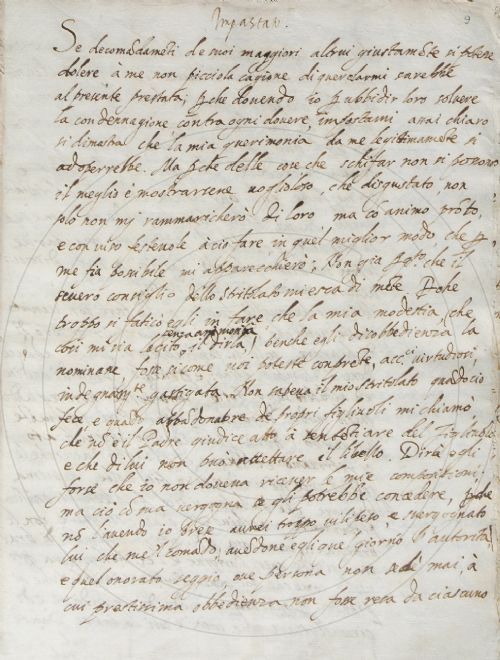 Impastato.
9
Se de comandamenti de suoi maggiori altrui giustamente si potesse
dolere à me non picciola cagione di querelarmi sarebbe
al presente prestata; perche dovendo Io per ubbidir loro solvere
la condennagione contra ogni dovere, assai chiaro
si dimostra che la mia querimonia da me legitimamente si
adoperrebbe. Ma perche delle cose che schifar non si possono
il meglio è mostrarsene voglioloso, che disgustato, non
solo non mi rammaricherò di loro ma cõ animo prõto,
e con viso festevole a ciò fare in quel miglior modo che
me fia possibile mi apparecchierò; Non gia che il
severo consiglio dello Stritolato mi esca di mẽte
troppo si faticò egli in fare che la mia modestia, che
così mi sia lecito senza cerimonia il dirla, benche egli disobbedienza la
nominasse fosse sicome voi poteste comprendere, virtudiosi,
indegnam.te gastigata. Non sapeva il mio Stritolato quãdo ciò
fece, e quãdo de propri figliuoli mi chiamò
che nõ è il Padre giudice atto à sentẽtiare del figliuolo
e che di lui non può aspettare il livello. Dirà egli
forse che io non doveva ricever le mie compositioni,
ma ciò cõ sua vergogna se gli potrebbe concedere,
nõ l'avendo io troppo vilipeso, e svergognato
lui che me l comãdò, avẽdone egli quel giorno l'autorità,
e quel onorato seggio, ove persona non sedè mai, à
cui prestissima obbedienza non fosse resa da ciascuno